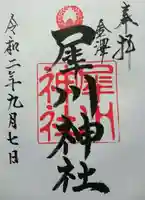 奉拝
金澤
犀川神社
犀川神社
令和二年九月七日